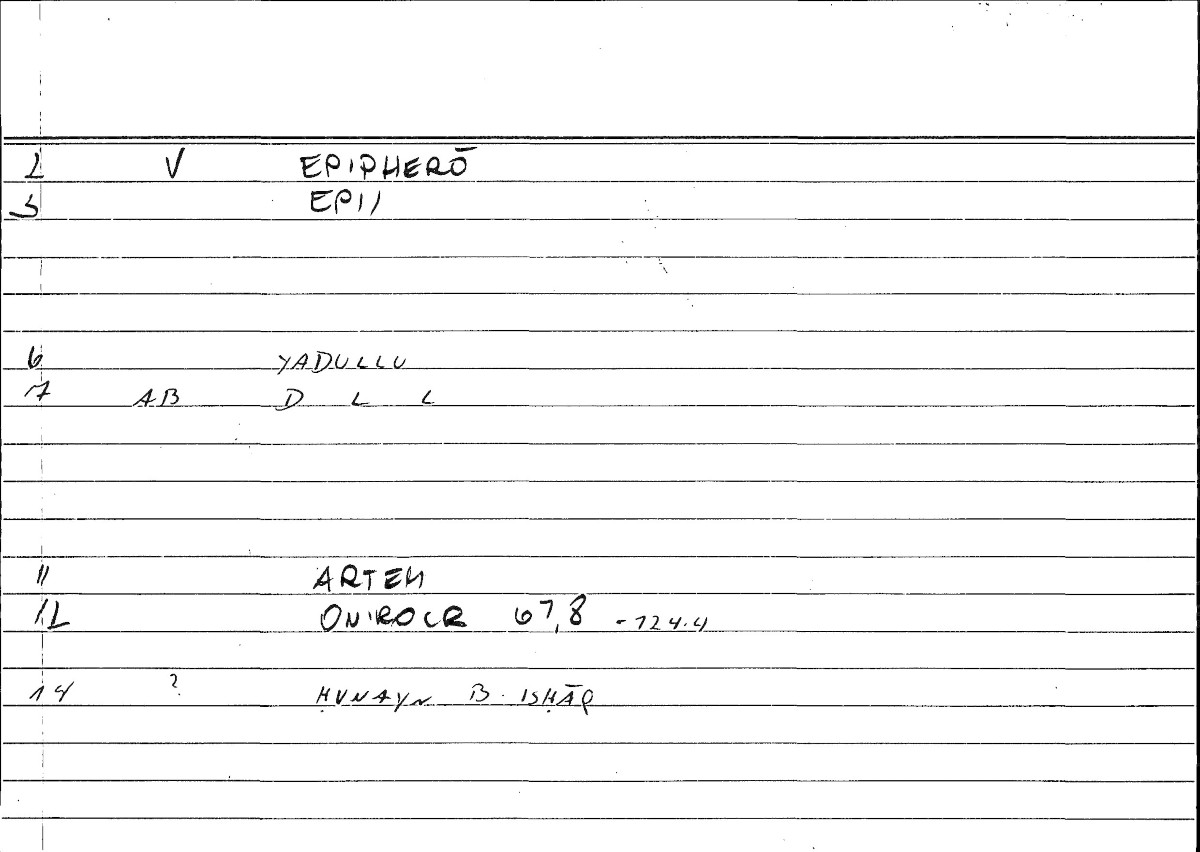 2 V EPIPHERŌ
3 EPI)
6 YADULLU
7 AB D L L
11 ARTEM
12 ONIROCR 67,8 -124.4
14 ? ḤUNAYN B. ISḤĀQ